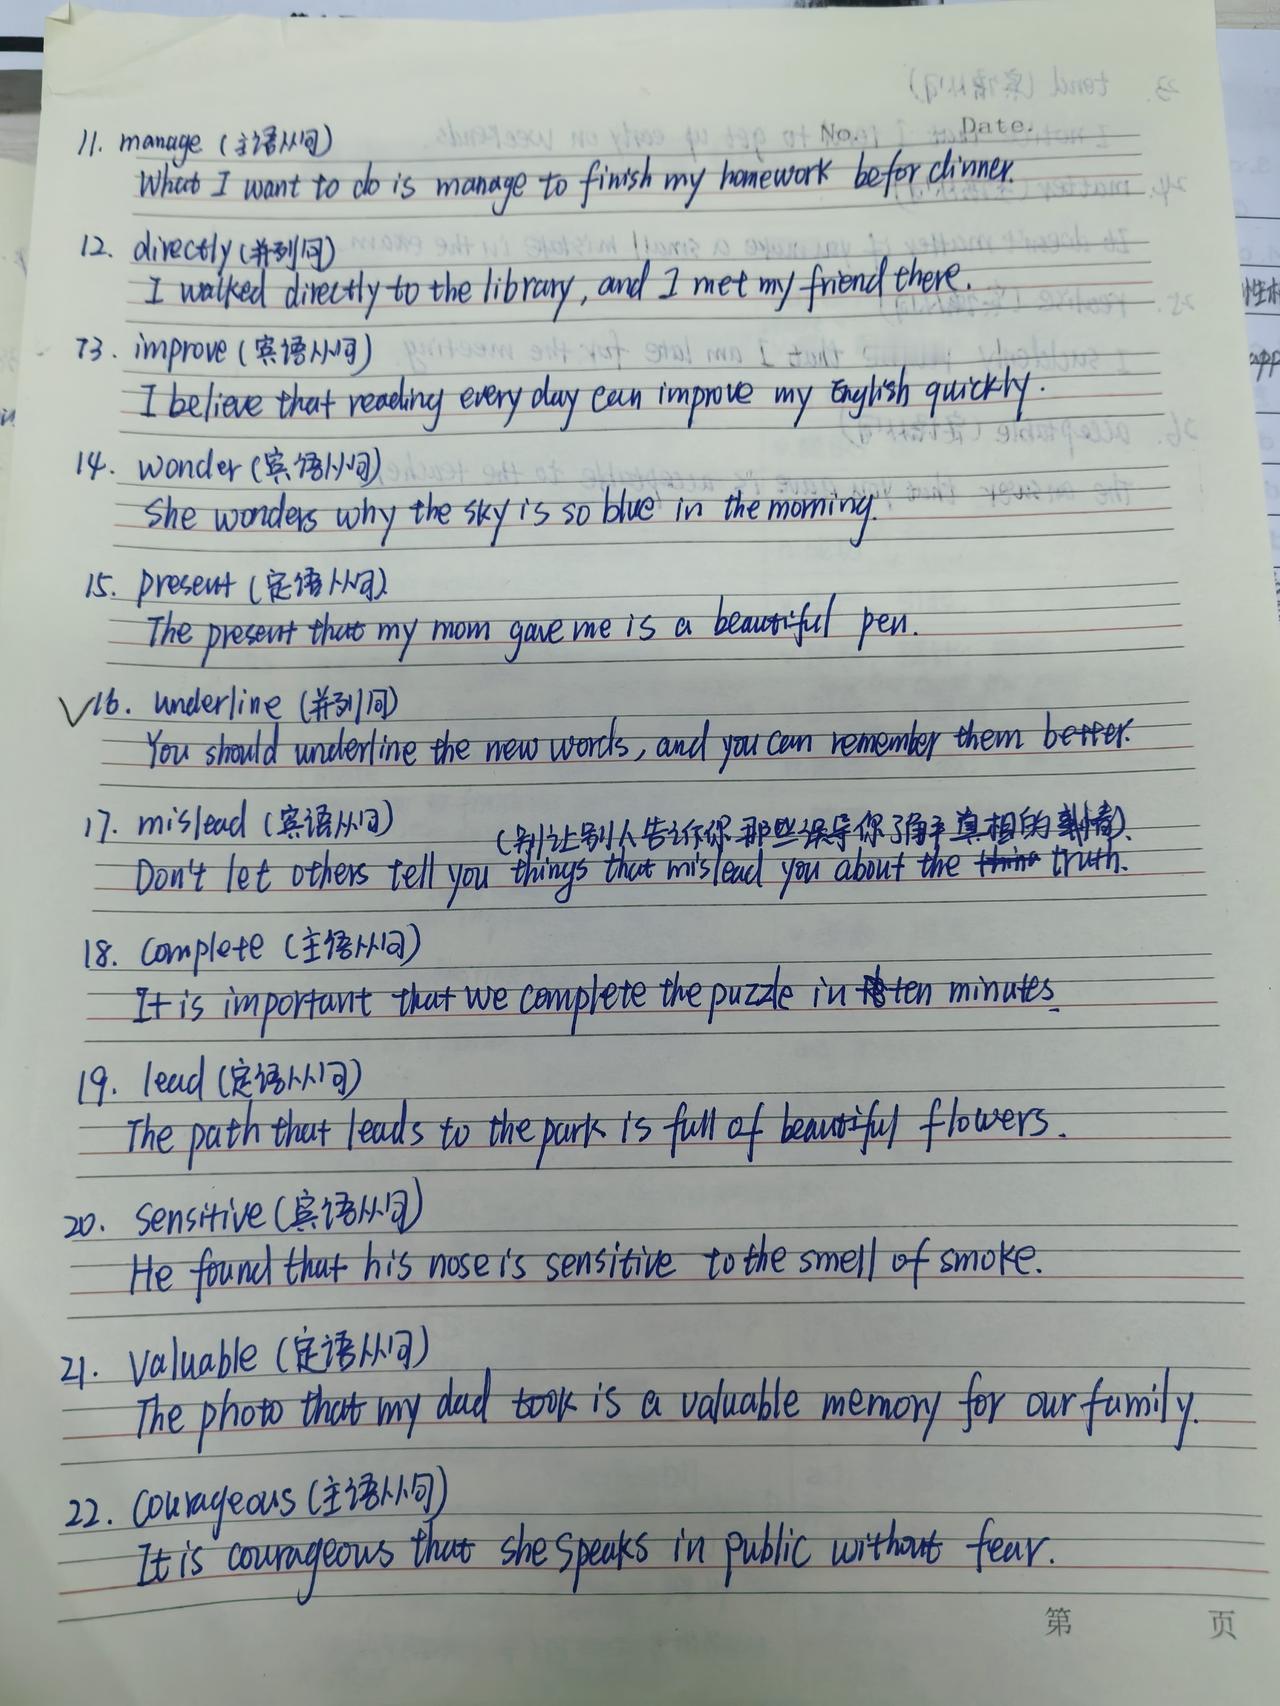 No. Date.
11. manage (主语从句)
What I want to do is manage to finish my homework befor dinner.
12. directly (并列句)
I walked directly to the library, and I met my friend there.
13. improve (宾语从句)
I believe that reading every day can improve my English quickly.
14. wonder (宾语从句)
She wonders why the sky is so blue in the morning.
15. present (定语从句)
The present that my mom gave me is a beautiful pen.
16. underline (并列句)
You should underline the new words, and you can remember them better.
17. mislead (宾语从句)
(别让别人告诉你那些误导你了解真相的事情).
Don't let others tell you things that mislead you about the truth.
18. complete (主语从句)
It is important that we complete the puzzle in ten minutes.
19. lead (定语从句)
The path that leads to the park is full of beautiful flowers.
20. sensitive (宾语从句)
He found that his nose is sensitive to the smell of smoke.
21. valuable (定语从句)
The photo that my dad took is a valuable memory for our family.
22. courageous (主语从句)
It is courageous that she speaks in public without fear.
第 页